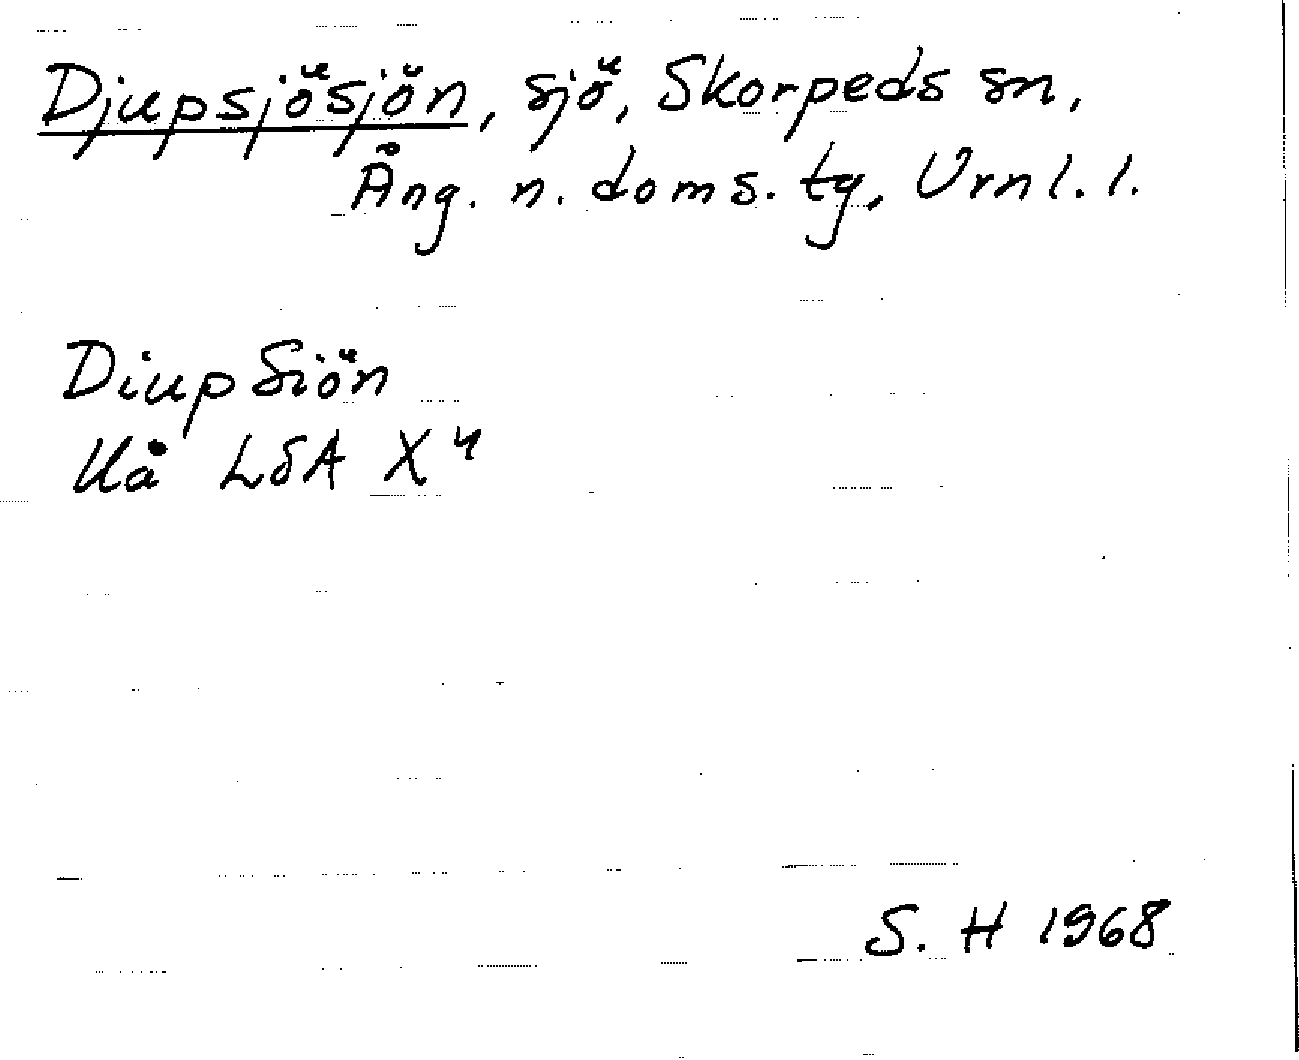 Djupsjösjön, sjö, Skorpeds sn,
Ång. n. doms. tg, Vrnl. l.
Diup Siön
Kå LSA X 4
S. H 1968